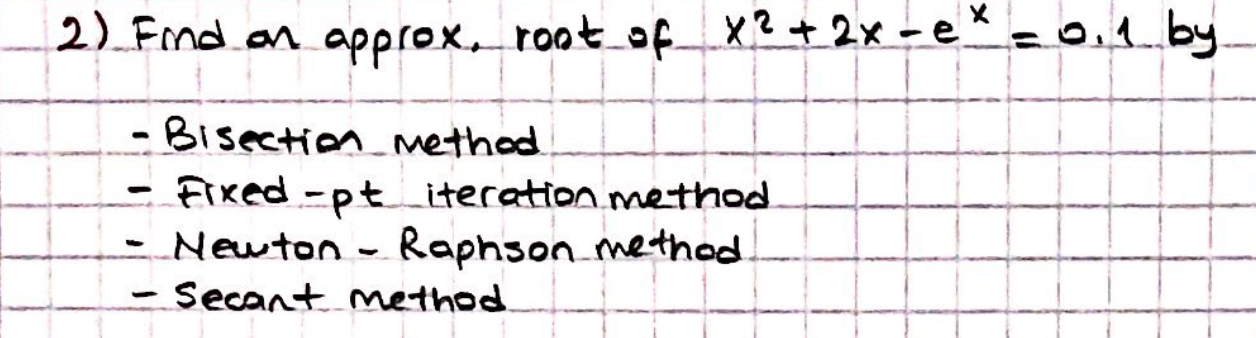 2) Find an approx. root of x² + 2x - eˣ = 0.1 by
- Bisection method
- Fixed-pt iteration method
- Newton - Raphson method
- Secant method